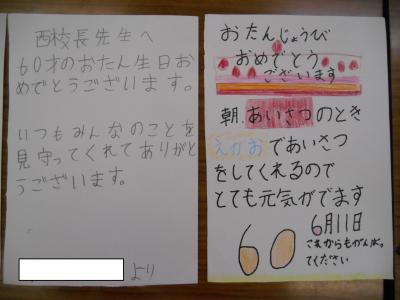 西校長先生へ
60才のおたん生日お
めでとうございます。
いつもみんなのことを
見守ってくれてありがと
うございます。
より
おたんじょうび
おめでとう
ございます
朝.あいさつのとき
えがおであいさつ
をしてくれるので
とても元気がでます
60
6月11日
これからもがんばっ
てください